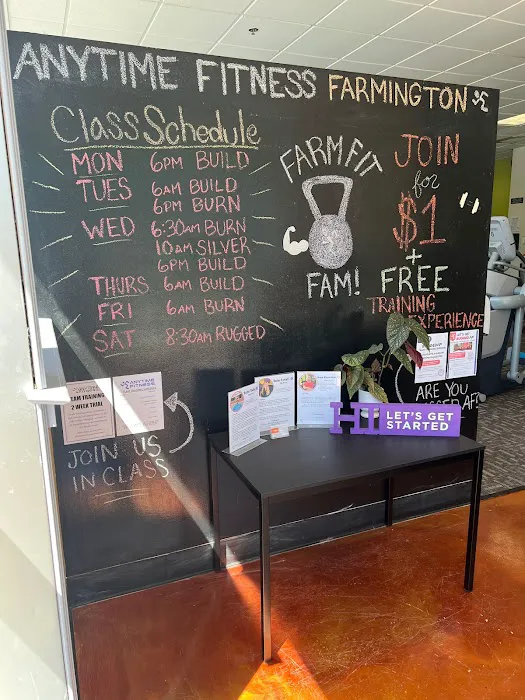 ANYTIME FITNESS FARMINGTON
Class Schedule
MON 6PM BUILD
TUES 6AM BUILD
6PM BURN
WED 6:30AM BURN
10AM SILVER
6PM BUILD
THURS 6AM BUILD
FRI 6AM BURN
SAT 8:30AM RUGGED
FARM FIT
FAM!
JOIN
for
$1
+
FREE
TRAINING
EXPERIENCE
ARE YOU
TEAM TRAINING
2 WEEK TRIAL
ANYTIME
FITNESS
JOIN US
IN CLASS
HI
LET'S GET
STARTED